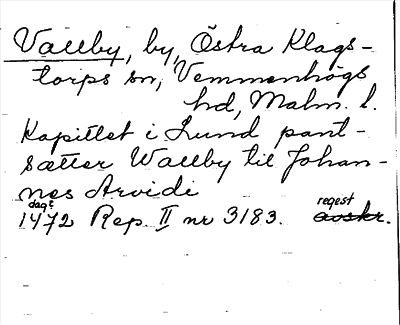 Vallby, by, Östra Klags-
torps sn, Vemmenhögs
hd, Malm. l.
Kapitlet i Lund pant-
sätter Wallby till Johan-
nes Arvidi
dag?
1472 Rep. II nr 3183. regest
avskr.